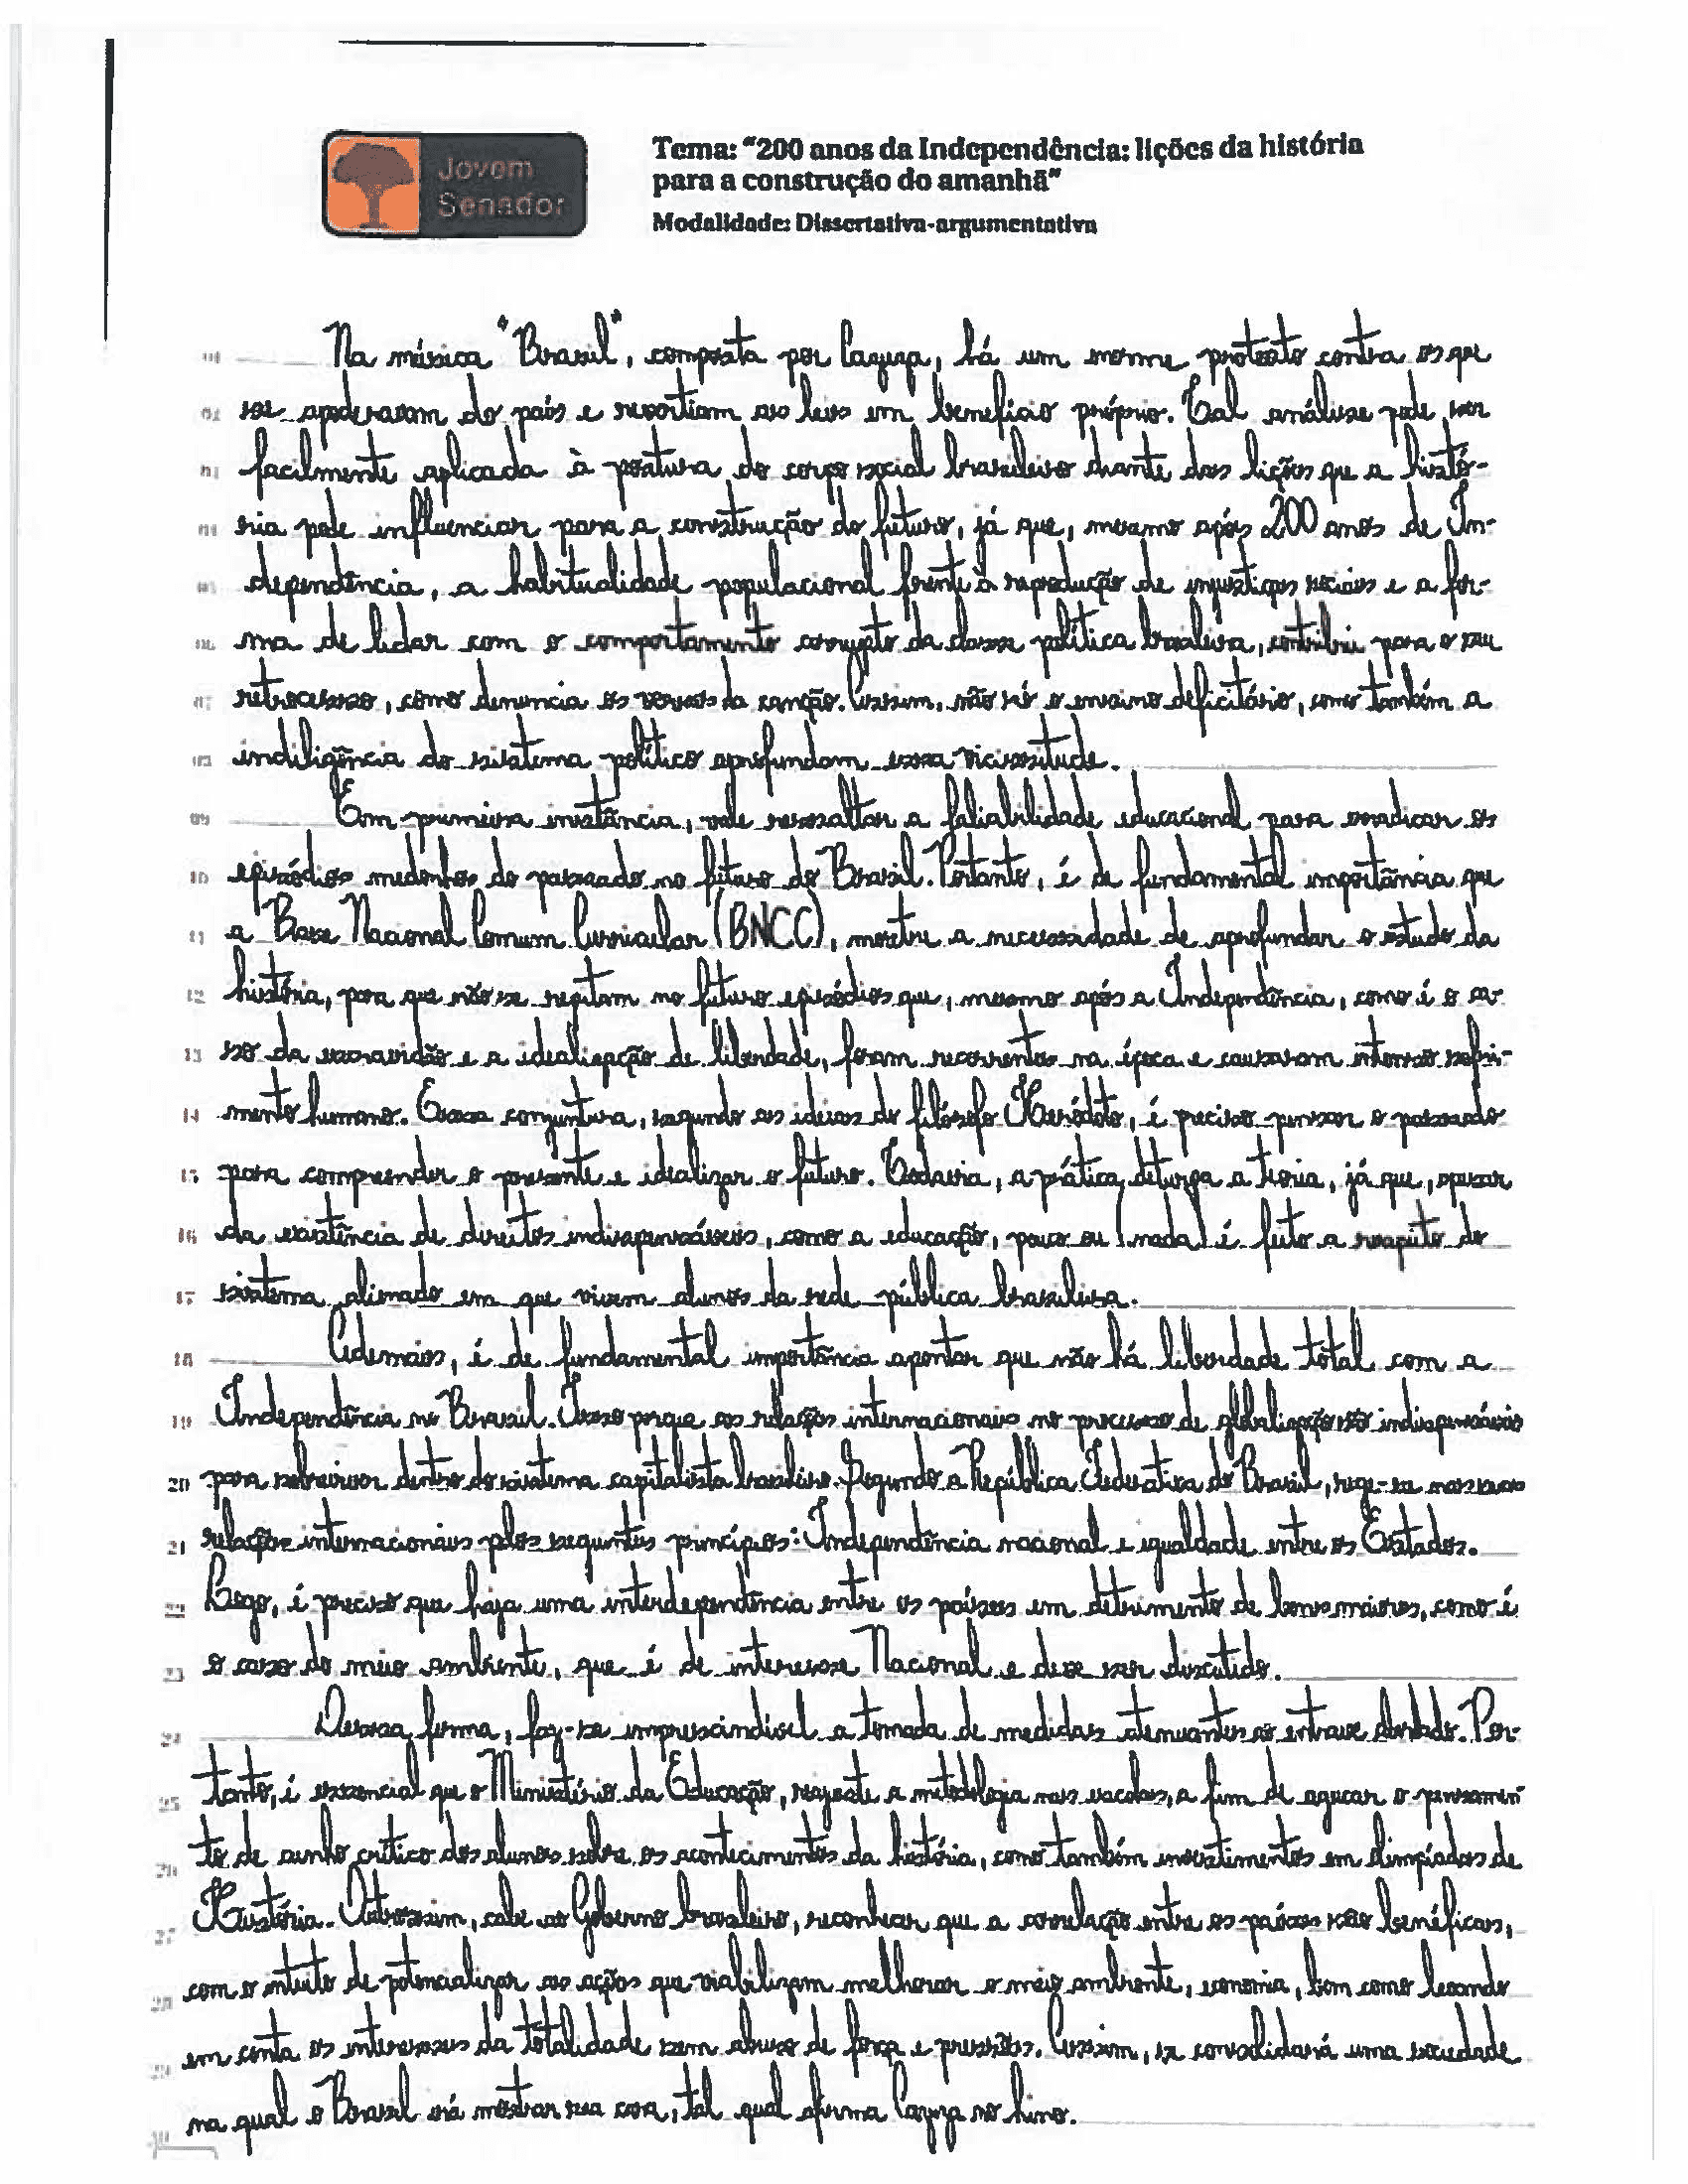 Jovem
Senador
Tema: "200 anos da Independência: lições da história
para a construção do amanhã"
Modalidade: Dissertativa-argumentativa
01 Na música "Brasil", composta por Cazuza, há um enorme protesto contra os que
02 se apoderaram do país e revertiam as leis em benefício próprio. Tal análise pode ser
03 facilmente aplicada à postura do corpo social brasileiro diante das lições que a histó-
04 ria pode influenciar para a construção do futuro, já que, mesmo após 200 anos de In-
05 dependência, a habitualidade populacional frente à reprodução de injustiças sociais e a for-
06 ma de lidar com o comportamento corrupto da classe política brasileira, contribui para o seu
07 retrocesso, como denuncia os versos da canção. Assim, não só o ensino deficitário, como também a
08 indiligência do sistema político aprofundam essa vicissitude.
09 Em primeira instância, vale ressaltar a faliabilidade educacional para erradicar os
10 episódios medonhos do passado no futuro do Brasil. Portanto, é de fundamental importância que
11 a Base Nacional Comum Curricular (BNCC), mostre a necessidade de aprofundar o estudo da
12 história, para que não se repitam no futuro episódios que, mesmo após a Independência, como é o ca-
13 so da escravidão e a idealização de liberdade, foram recorrentes na época e causaram intenso sofri-
14 mento humano. Essa conjuntura, segundo as ideias do filósofo Heródoto, é preciso pensar o passado
15 para compreender o presente e idealizar o futuro. Todavia, a prática deturpa a teoria, já que, apesar
16 da existência de direitos indispensáveis, como a educação, pouco ou (nada) é feito a respeito do
17 sistema alienado em que vivem alunos da rede pública brasileira.
18 Ademais, é de fundamental importância apontar que não há liberdade total com a
19 Independência no Brasil. Isso porque as relações internacionais no processo de globalização são indispensáveis
20 para sobreviver dentro do sistema capitalista brasileiro. Segundo a República Federativa do Brasil, rege-se nas suas
21 relações internacionais pelos seguintes princípios: Independência nacional e igualdade entre os Estados.
22 Logo, é preciso que haja uma interdependência entre os países em detrimento de bens maiores, como é
23 o caso do meio ambiente, que é de interesse Nacional e deve ser discutido.
24 Dessa forma, faz-se imprescindível a tomada de medidas atenuantes ao entrave abordado. Por-
25 tanto, é essencial que o Ministério da Educação, reajuste a metodologia nas escolas, a fim de aguçar o pensamen
26 to de cunho crítico dos alunos sobre os acontecimentos da história, como também investimentos em olimpíadas de
27 História. Outrossim, cabe ao Governo brasileiro, reconhecer que a correlação entre os países são benéficas,
28 com o intuito de potencializar as ações que viabilizam melhorar o meio ambiente, economia, bem como levando
29 em conta os interesses da totalidade sem abuso de força e pressões. Assim, se consolidará uma sociedade
30 na qual o Brasil irá mostrar sua cara, tal qual afirma Cazuza no hino.